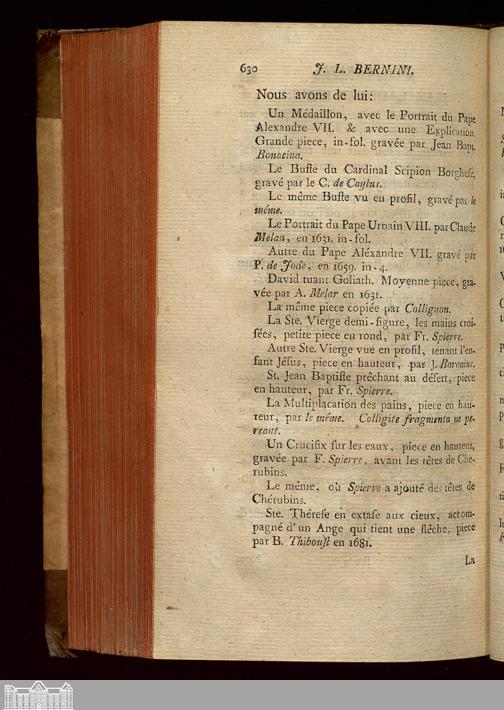 630 J. L. BERNINI.
Nous avons de lui:
Un Médaillon, avec le Portrait du Pape
Alexandre VII. & avec une Explication.
Grande piece, in-fol. gravée par Jean Bapt.
Bonacina.
Le Buste du Cardinal Scipion Borghese,
gravé par le C. de Caylus.
Le même Buste vu en profil, gravé par le
même.
Le Portrait du Pape Urbain VIII. par Claude
Melan, en 1631. in-fol.
Autre du Pape Aléxandre VII. gravé par
P. de Jode, en 1659. in-4.
David tuant Goliath. Moyenne piece, gra-
vée par A. Melar en 1631.
La même piece copiée par Collignon.
La Ste. Vierge demi-figure, les mains croi-
sées, petite piece en rond, par Fr. Spierre.
Autre Ste. Vierge vue en profil, tenant l'en-
fant Jésus, piece en hauteur, par J. Baronius.
St. Jean Baptiste prêchant au désert, piece
en hauteur, par Fr. Spierre.
La Multiplacation des pains, piece en hau-
teur, par le même. Colligite fragmenta ne pe-
reant.
Un Crucifix sur les eaux, piece en hauteur,
gravée par F. Spierre, avant les têtes de Che-
rubins.
Le même, où Spierre a ajouté des têtes de
Chérubins.
Ste. Thérese en extase aux cieux, accom-
pagné d'un Ange qui tient une flêche, piece
par B. Thiboust en 1681.
La